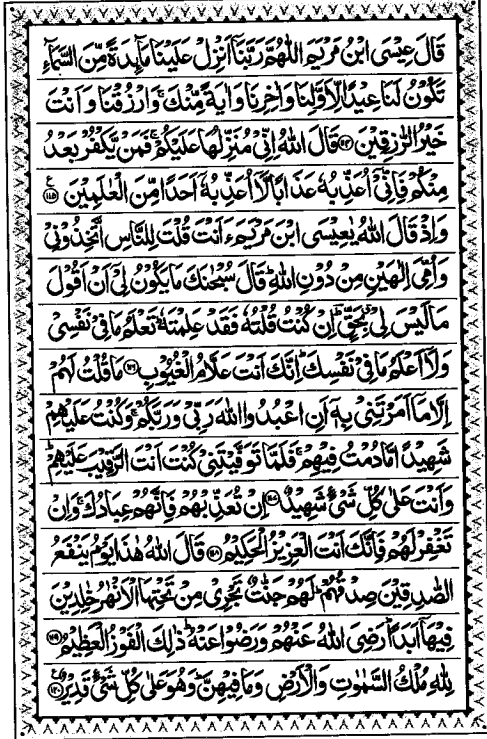 قَالَ عِيْسَى ابْنُ مَرْيَمَ اللّٰهُمَّ رَبَّنَاۤ اَنْزِلْ عَلَيْنَا مَآىِٕدَةً مِّنَ السَّمَآءِ
تَكُوْنُ لَنَا عِيْدًا لِّاَوَّلِنَا وَاٰخِرِنَا وَاٰيَةً مِّنْكَ ۚ وَارْزُقْنَا وَاَنْتَ
خَيْرُ الرّٰزِقِيْنَ ﴿۱۱۴﴾ قَالَ اللّٰهُ اِنِّيْ مُنَزِّلُهَا عَلَيْكُمْ ۚ فَمَنْ يَّكْفُرْ بَعْدُ
مِنْكُمْ فَاِنِّيْۤ اُعَذِّبُهٗ عَذَابًا لَّاۤ اُعَذِّبُهٗۤ اَحَدًا مِّنَ الْعٰلَمِيْنَ ﴿۱۱۵﴾ ع
وَاِذْ قَالَ اللّٰهُ يٰعِيْسَى ابْنَ مَرْيَمَ ءَاَنْتَ قُلْتَ لِلنَّاسِ اتَّخِذُوْنِيْ
وَاُمِّيَ اِلٰهَيْنِ مِنْ دُوْنِ اللّٰهِ ؕ قَالَ سُبْحٰنَكَ مَا يَكُوْنُ لِيْۤ اَنْ اَقُوْلَ
مَا لَيْسَ لِيْ بِحَقٍّ ؕ اِنْ كُنْتُ قُلْتُهٗ فَقَدْ عَلِمْتَهٗ ؕ تَعْلَمُ مَا فِيْ نَفْسِيْ
وَلَاۤ اَعْلَمُ مَا فِيْ نَفْسِكَ ؕ اِنَّكَ اَنْتَ عَلَّامُ الْغُيُوْبِ ﴿۱۱۶﴾ مَا قُلْتُ لَهُمْ
اِلَّا مَاۤ اَمَرْتَنِيْ بِهٖۤ اَنِ اعْبُدُوا اللّٰهَ رَبِّيْ وَرَبَّكُمْ ۚ وَكُنْتُ عَلَيْهِمْ
شَهِيْدًا مَّا دُمْتُ فِيْهِمْ ۚ فَلَمَّا تَوَفَّيْتَنِيْ كُنْتَ اَنْتَ الرَّقِيْبَ عَلَيْهِمْ ؕ
وَاَنْتَ عَلٰى كُلِّ شَيْءٍ شَهِيْدٌ ﴿۱۱۷﴾ اِنْ تُعَذِّبْهُمْ فَاِنَّهُمْ عِبَادُكَ ۚ وَاِنْ
تَغْفِرْ لَهُمْ فَاِنَّكَ اَنْتَ الْعَزِيْزُ الْحَكِيْمُ ﴿۱۱۸﴾ قَالَ اللّٰهُ هٰذَا يَوْمُ يَنْفَعُ
الصّٰدِقِيْنَ صِدْقُهُمْ ؕ لَهُمْ جَنّٰتٌ تَجْرِيْ مِنْ تَحْتِهَا الْاَنْهٰرُ خٰلِدِيْنَ
فِيْهَاۤ اَبَدًا ؕ رَضِيَ اللّٰهُ عَنْهُمْ وَرَضُوْا عَنْهُ ؕ ذٰلِكَ الْفَوْزُ الْعَظِيْمُ ﴿۱۱۹﴾
لِلّٰهِ مُلْكُ السَّمٰوٰتِ وَالْاَرْضِ وَمَا فِيْهِنَّ ؕ وَهُوَ عَلٰى كُلِّ شَيْءٍ قَدِيْرٌ ﴿۱۲۰﴾ ع